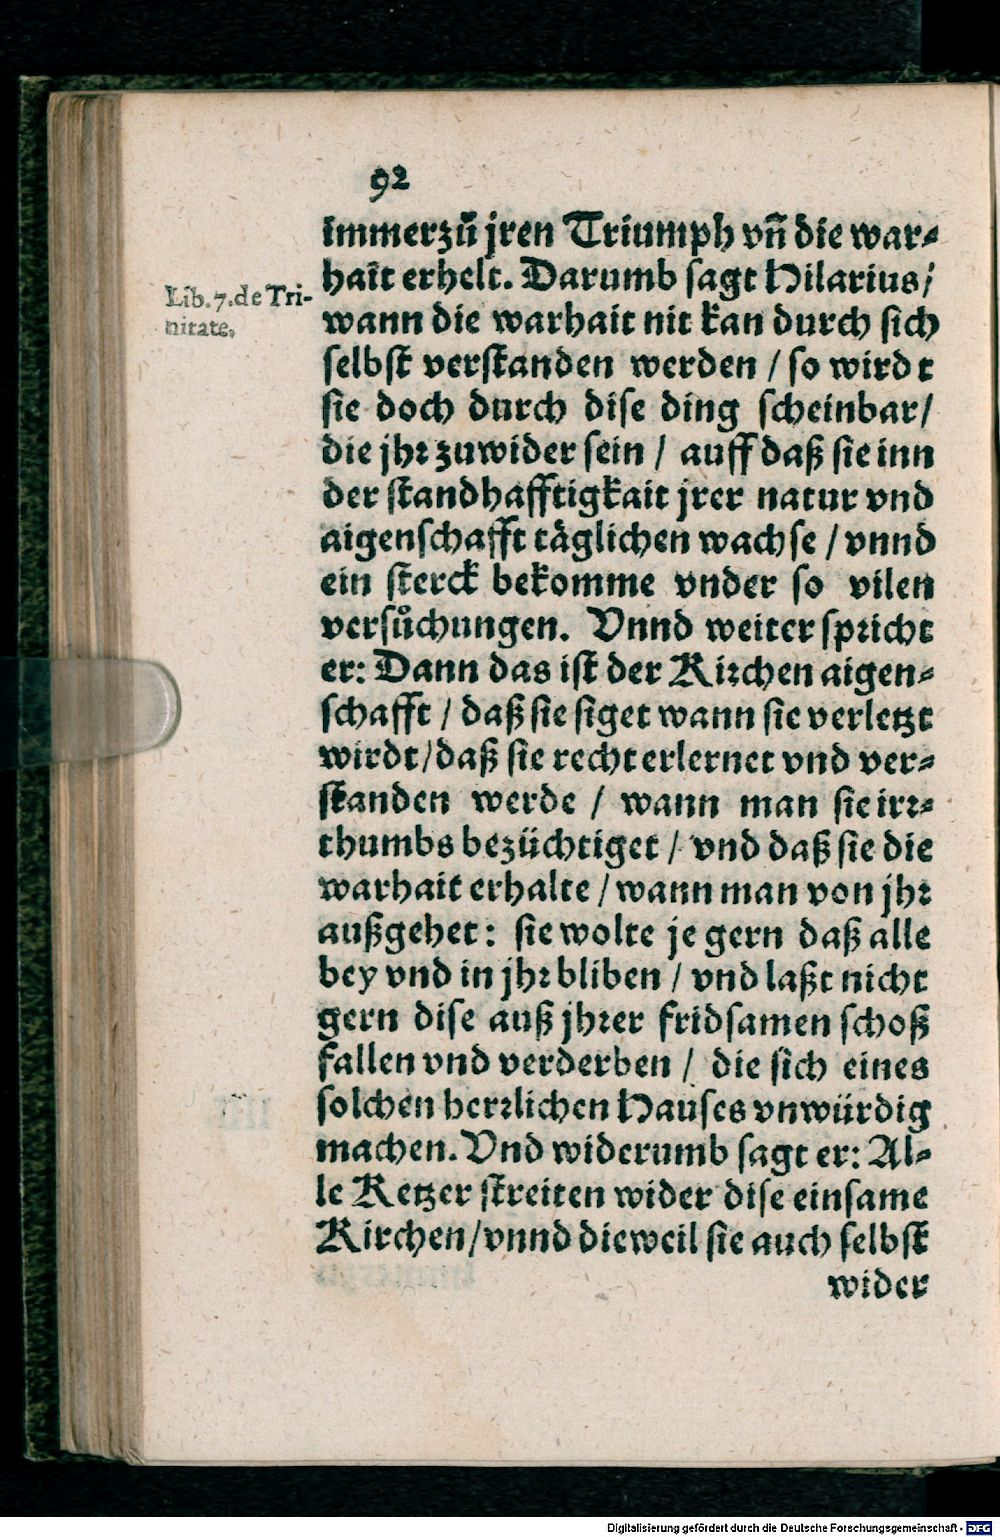 92
immerzů jren Triumph vñ die war-
hait erhelt. Darumb sagt Hilarius/
Lib. 7. de Tri-
nitate.
wann die warhait nit kan durch sich
selbst verstanden werden / so wirdt
sie doch durch dise ding scheinbar/
die jhr zuwider sein / auff daß sie inn
der standhafftigkait jrer natur vnd
aigenschafft täglichen wachse / vnnd
ein sterck bekomme vnder so vilen
versůchungen. Vnnd weiter spricht
er: Dann das ist der Kirchen aigen-
schafft / daß sie siget wann sie verletzt
wirdt/daß sie recht erlernet vnd ver-
standen werde / wann man sie irr-
thumbs bezüchtiget / vnd daß sie die
warhait erhalte / wann man von jhr
außgehet: sie wolte je gern daß alle
bey vnd in jhr bliben / vnd laßt nicht
gern dise auß jhrer fridsamen schoß
fallen vnd verderben / die sich eines
solchen herrlichen Hauses vnwürdig
machen. Vnd widerumb sagt er: Al-
le Ketzer streiten wider dise einsame
Kirchen/vnnd dieweil sie auch selbst
wider
Digitalisierung gefördert durch die Deutsche Forschungsgemeinschaft - DFG